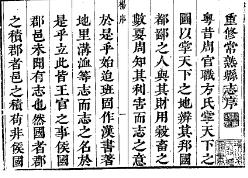 重修常熟縣志序
粤昔周官職方氏掌天下之
圖以掌天下之地辨其邦國
都鄙之人與其財用穀畜之
數要周知其利害而志之意
楊序
於是乎始迨班固作漢書著
地里溝洫等志而志之名於
是乎立此皆王官之事侯國
郡邑未聞有志也然國者郡
之積郡者邑之積有非侯國